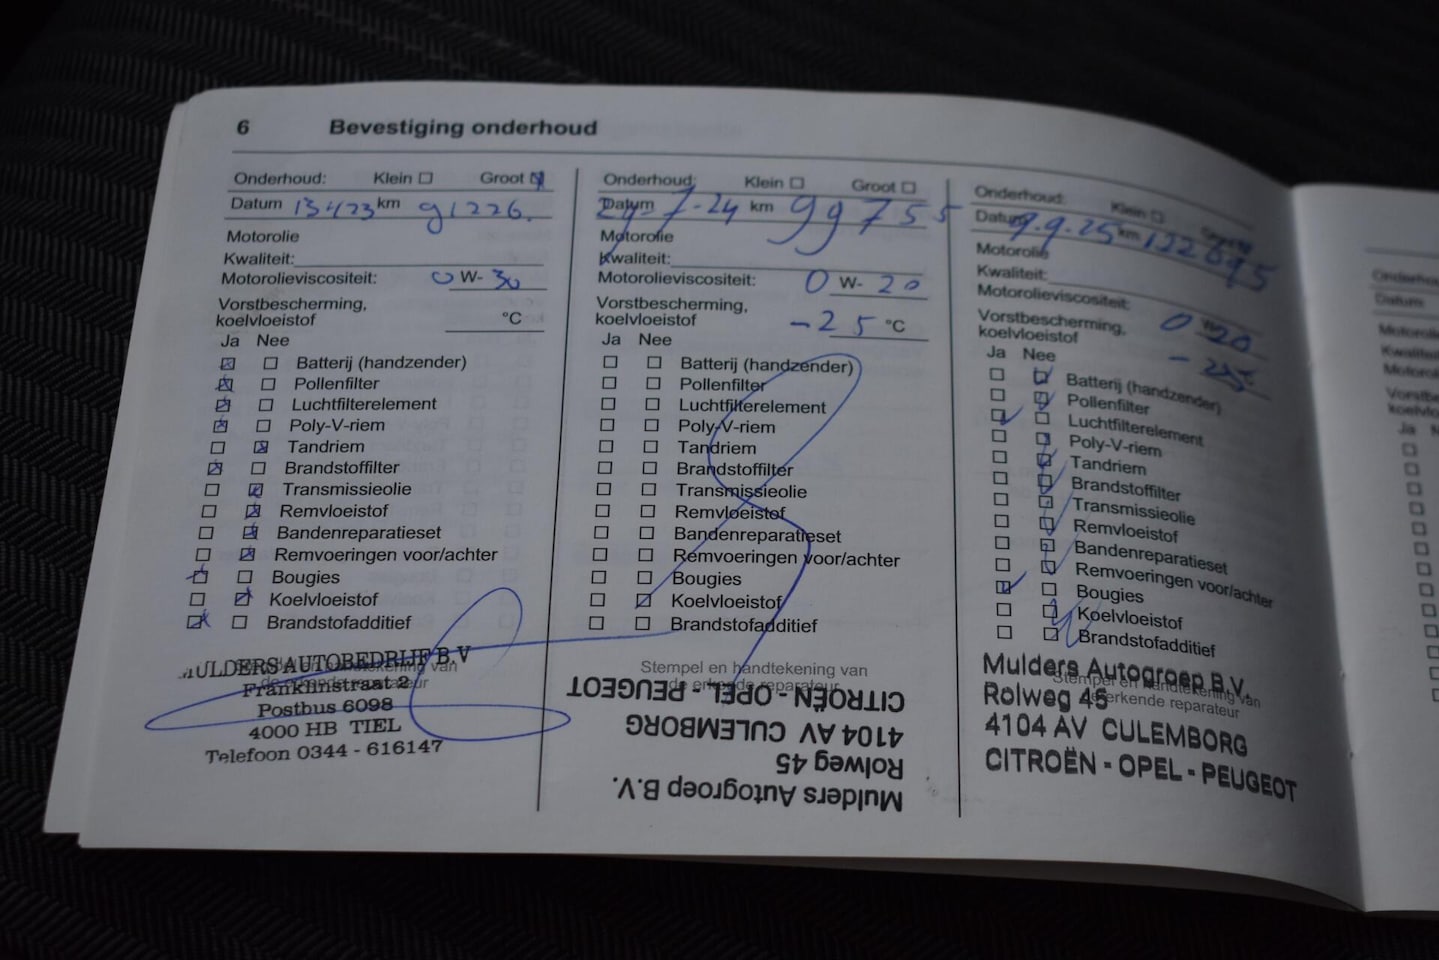 6 Bevestiging onderhoud
Onderhoud: Klein Groot
Datum 13/4/23 km 91226.
Motorolie
Kwaliteit:
Motorolieviscositeit: 0 W- 30
Vorstbescherming,
koelvloeistof °C
Ja Nee
Batterij (handzender)
Pollenfilter
Luchtfilterelement
Poly-V-riem
Tandriem
Brandstoffilter
Transmissieolie
Remvloeistof
Bandenreparatieset
Remvoeringen voor/achter
Bougies
Koelvloeistof
Brandstofadditief
Stempel en handtekening van
de erkende reparateur
MULDERS AUTOBEDRIJF B.V
Franklinstraat 2
Postbus 6098
4000 HB TIEL
Telefoon 0344 - 616147
Onderhoud: Klein Groot
Datum 29-7-24 km 99755
Motorolie
Kwaliteit:
Motorolieviscositeit: 0 W- 20
Vorstbescherming,
koelvloeistof -25 °C
Ja Nee
Batterij (handzender)
Pollenfilter
Luchtfilterelement
Poly-V-riem
Tandriem
Brandstoffilter
Transmissieolie
Remvloeistof
Bandenreparatieset
Remvoeringen voor/achter
Bougies
Koelvloeistof
Brandstofadditief
Stempel en handtekening van
de erkende reparateur
Mulders Autogroep B.V.
Rolweg 45
4104 AV CULEMBORG
CITROËN - OPEL - PEUGEOT
Onderhoud: Klein Groot
Datum 9.9.25 km 122895
Motorolie
Kwaliteit:
Motorolieviscositeit:
Vorstbescherming, 0 W- 20
koelvloeistof
Ja Nee
Batterij (handzender)
Pollenfilter
Luchtfilterelement
Poly-V-riem
Tandriem
Brandstoffilter
Transmissieolie
Remvloeistof
Bandenreparatieset
Remvoeringen voor/achter
Bougies
Koelvloeistof
Brandstofadditief
Stempel en handtekening van
de erkende reparateur
Mulders Autogroep B.V.
Rolweg 45
4104 AV CULEMBORG
CITROËN - OPEL - PEUGEOT